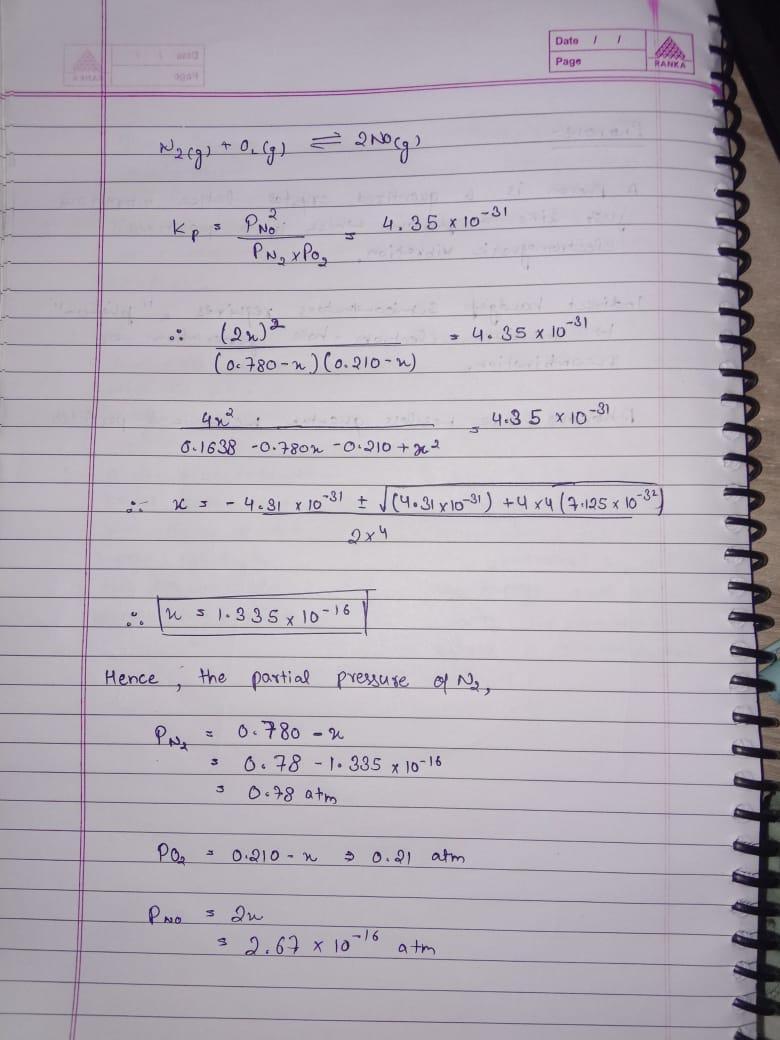 Date / /
Page
RANKA
N2(g) + O2(g) ⇌ 2NO(g)
Kp = PNO² / PN2 × PO2 = 4.35 × 10^-31
∴ (2x)² / (0.780-x)(0.210-x) = 4.35 × 10^-31
4x² / 0.1638 - 0.780x - 0.210 + x² = 4.35 × 10^-31
∴ x = -4.31 × 10^-31 ± √(4.31 × 10^-31) + 4 × 4 (7.125 × 10^-32) / 2×4
∴ x = 1.335 × 10^-16
Hence, the partial pressure of N2,
PN2 = 0.780 - x
= 0.78 - 1.335 × 10^-16
= 0.78 atm
PO2 = 0.210 - x ⇒ 0.21 atm
PNO = 2x
= 2.67 × 10^-16 atm